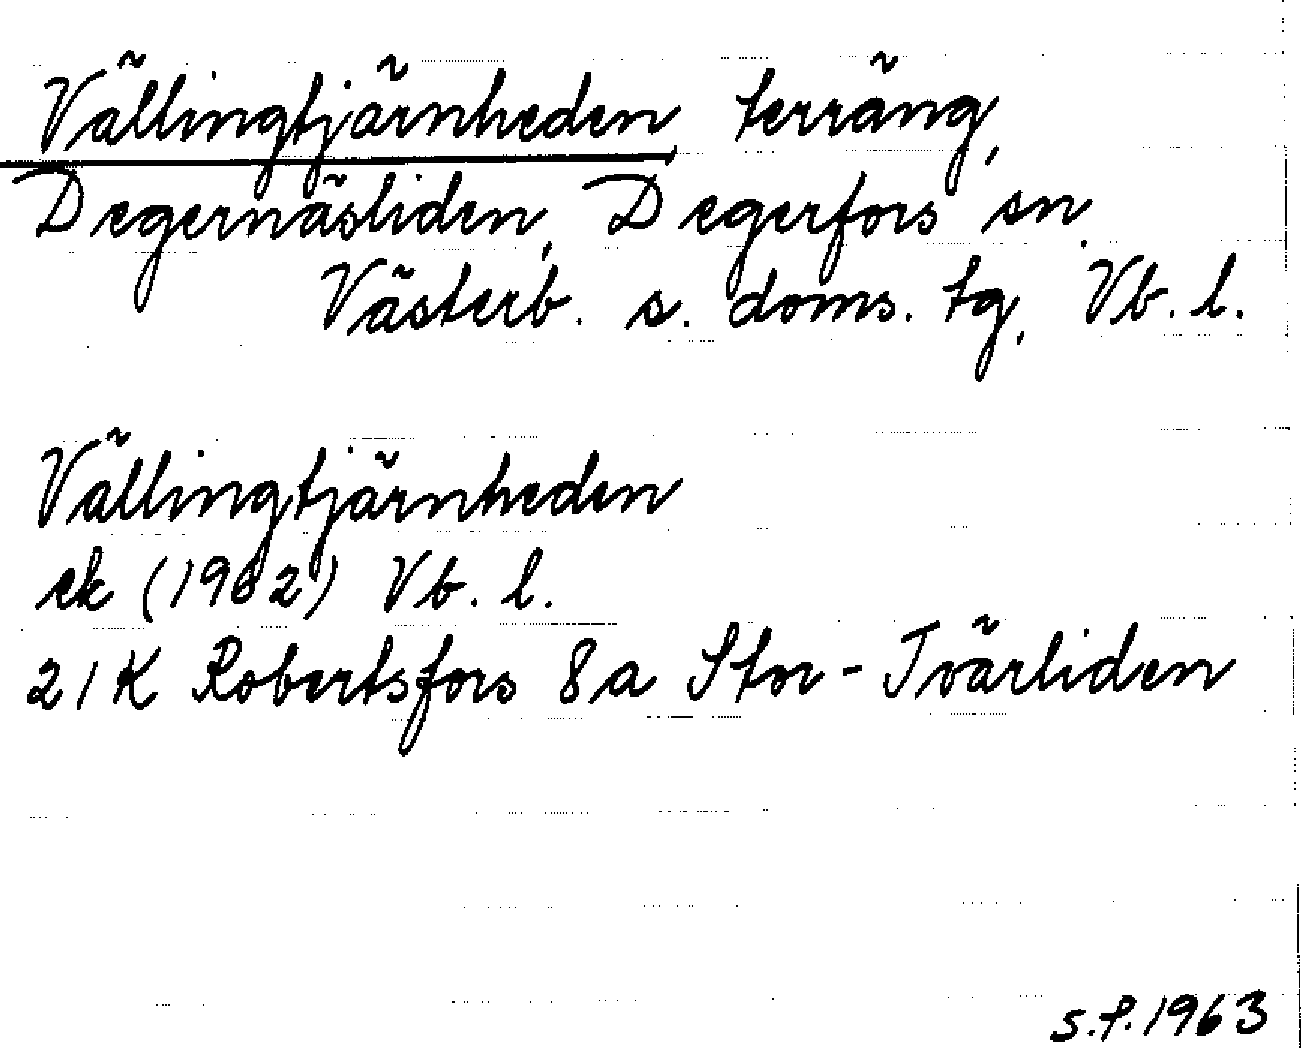 Vällingtjärnheden terräng,
Degernäsliden, Degerfors sn.
Västerb. s. doms. tg, Vb. l.
Vällingtjärnheden
ek (1962) Vb. l.
21K Robertsfors 8a Stor-Tvärliden
S.P. 1963